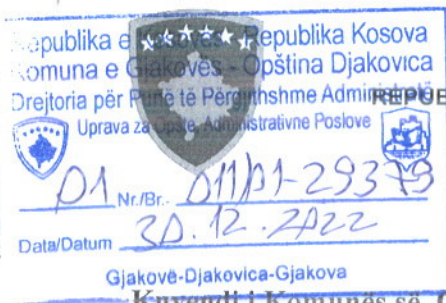 Republika e Kosovës - Republika Kosova
Komuna e Gjakovës - Opština Djakovica
Drejtoria për Punë të Përgjithshme Administrative
REPUB
Uprava za Opšte Administrativne Poslove
01 Nr./Br.- 011/01-29379
Data/Datum 30.12.2022
Gjakovë-Djakovica-Gjakova
Kuvendi i Komunës së